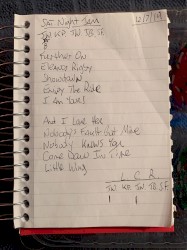 SF Night Jam 6/7/19
TW KE TW TB SF
Further On
Eleanor Rigby
Showdown
Enjoy The Ride
I Am Yours
And I Love Her
Nobody's Fault But Mine
Nobody Knows You
Come Down In Time
Little Wing
L C R
TW KE TW TB S.F.
| |